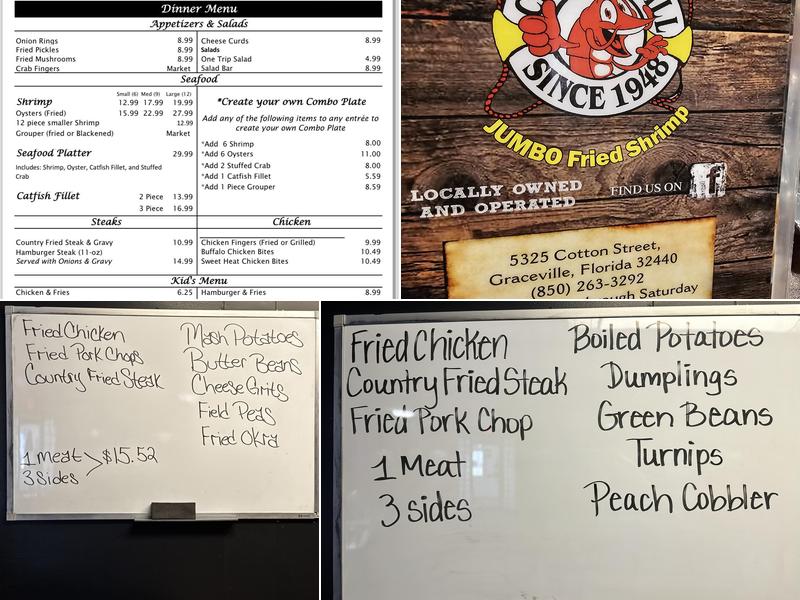 Dinner Menu
Appetizers & Salads
Onion Rings 8.99
Fried Pickles 8.99
Fried Mushrooms 8.99
Crab Fingers Market
Cheese Curds 8.99
Salads
One Trip Salad 4.99
Salad Bar 8.99
Seafood
Small (6) Med (9) Large (12)
Shrimp 12.99 17.99 19.99
Oysters (Fried) 15.99 22.99 27.99
12 piece smaller Shrimp 12.99
Grouper (fried or Blackened) Market
Seafood Platter 29.99
Includes: Shrimp, Oyster, Catfish Fillet, and Stuffed
Crab
Catfish Fillet 2 Piece 13.99
3 Piece 16.99
*Create your own Combo Plate
Add any of the following items to any entrée to
create your own Combo Plate
*Add 6 Shrimp 8.00
*Add 6 Oysters 11.00
*Add 2 Stuffed Crab 8.00
*Add 1 Catfish Fillet 5.59
*Add 1 Piece Grouper 8.59
Steaks
Country Fried Steak & Gravy 10.99
Hamburger Steak (11-oz)
Served with Onions & Gravy 14.99
Chicken
Chicken Fingers (Fried or Grilled) 9.99
Buffalo Chicken Bites 10.49
Sweet Heat Chicken Bites 10.49
Kid's Menu
Chicken & Fries 6.25
Hamburger & Fries 8.99
SINCE 1948
JUMBO Fried Shrimp
LOCALLY OWNED
AND OPERATED
FIND US ON f
5325 Cotton Street,
Graceville, Florida 32440
(850) 263-3292
Saturday
Fried Chicken
Fried Pork Chops
Country Fried Steak
1 meat
3 Sides
$15.52
Mash Potatoes
Butter Beans
Cheese Grits
Field Peas
Fried Okra
Fried Chicken
Country Fried Steak
Fried Pork Chop
1 Meat
3 sides
Boiled Potatoes
Dumplings
Green Beans
Turnips
Peach Cobbler